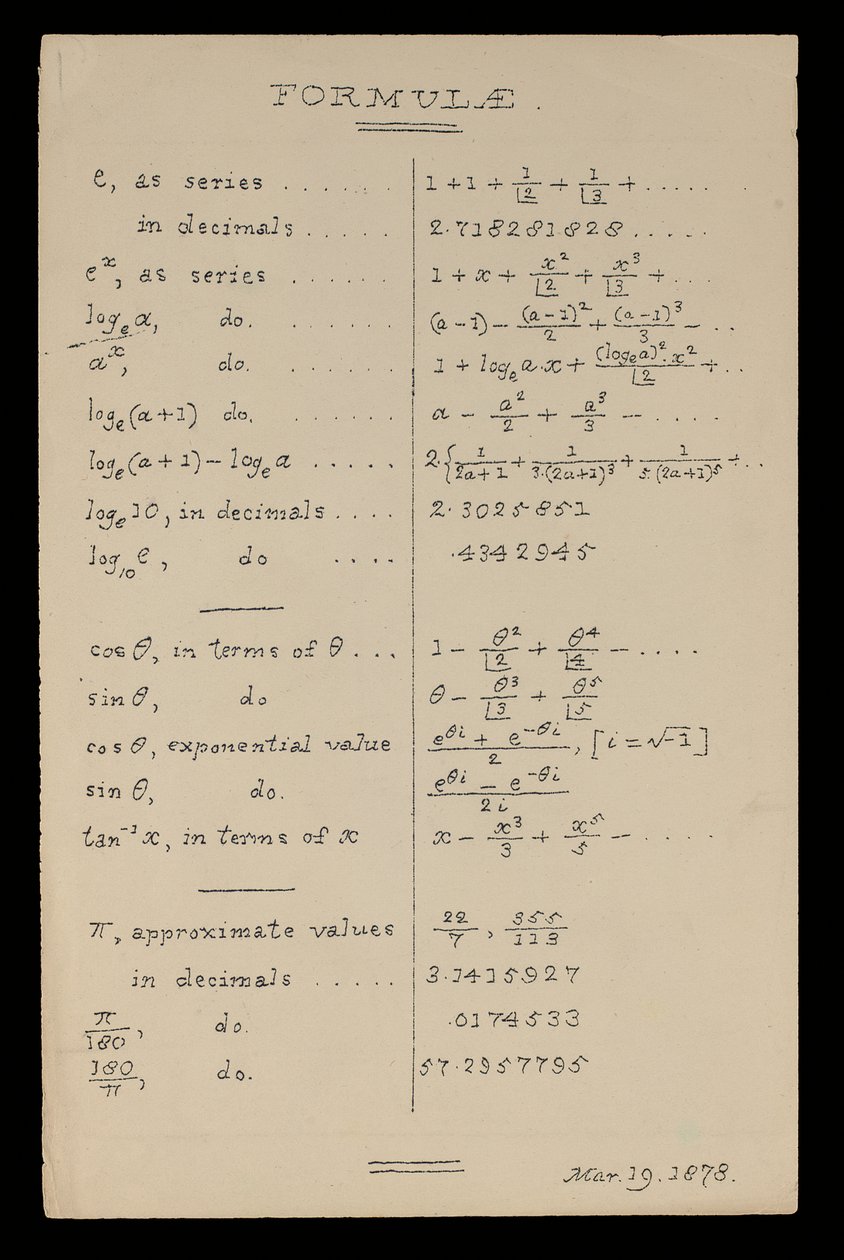 FORMULÆ.
e, as series . . . . . . 1 + 1 + 1/|2 + 1/|3 + . . . . . .
in decimals . . . . . 2·718281828 . . . . .
e^x, as series . . . . . . 1 + x + x²/|2 + x³/|3 + . . .
logₑa, do. . . . . . . (a-1) - (a-1)²/2 + (a-1)³/3 - . .
a^x, do. . . . . . . 1 + logₑa·x + (logₑa)²·x²/|2 + . .
logₑ(a+1) do. . . . . . . a - a²/2 + a³/3 - . . . .
logₑ(a+1) - logₑa . . . . . 2·{1/2a+1 + 1/3·(2a+1)³ + 1/5·(2a+1)⁵ + . .
logₑ10, in decimals . . . . 2·3025851
log₁₀e, do . . . . ·4342945
cos θ, in terms of θ . . . 1 - θ²/|2 + θ⁴/|4 - . . . .
sin θ, do θ - θ³/|3 + θ⁵/|5
cos θ, exponential value e^θi + e^-θi/2, [i = √-1]
sin θ, do. e^θi - e^-θi/2i
tan⁻¹x, in terms of x x - x³/3 + x⁵/5 - . . . .
π, approximate values 22/7, 355/113
in decimals . . . . . 3·1415927
π/180, do. ·0174533
180/π, do. 57·2957795
Mar. 19. 1878.